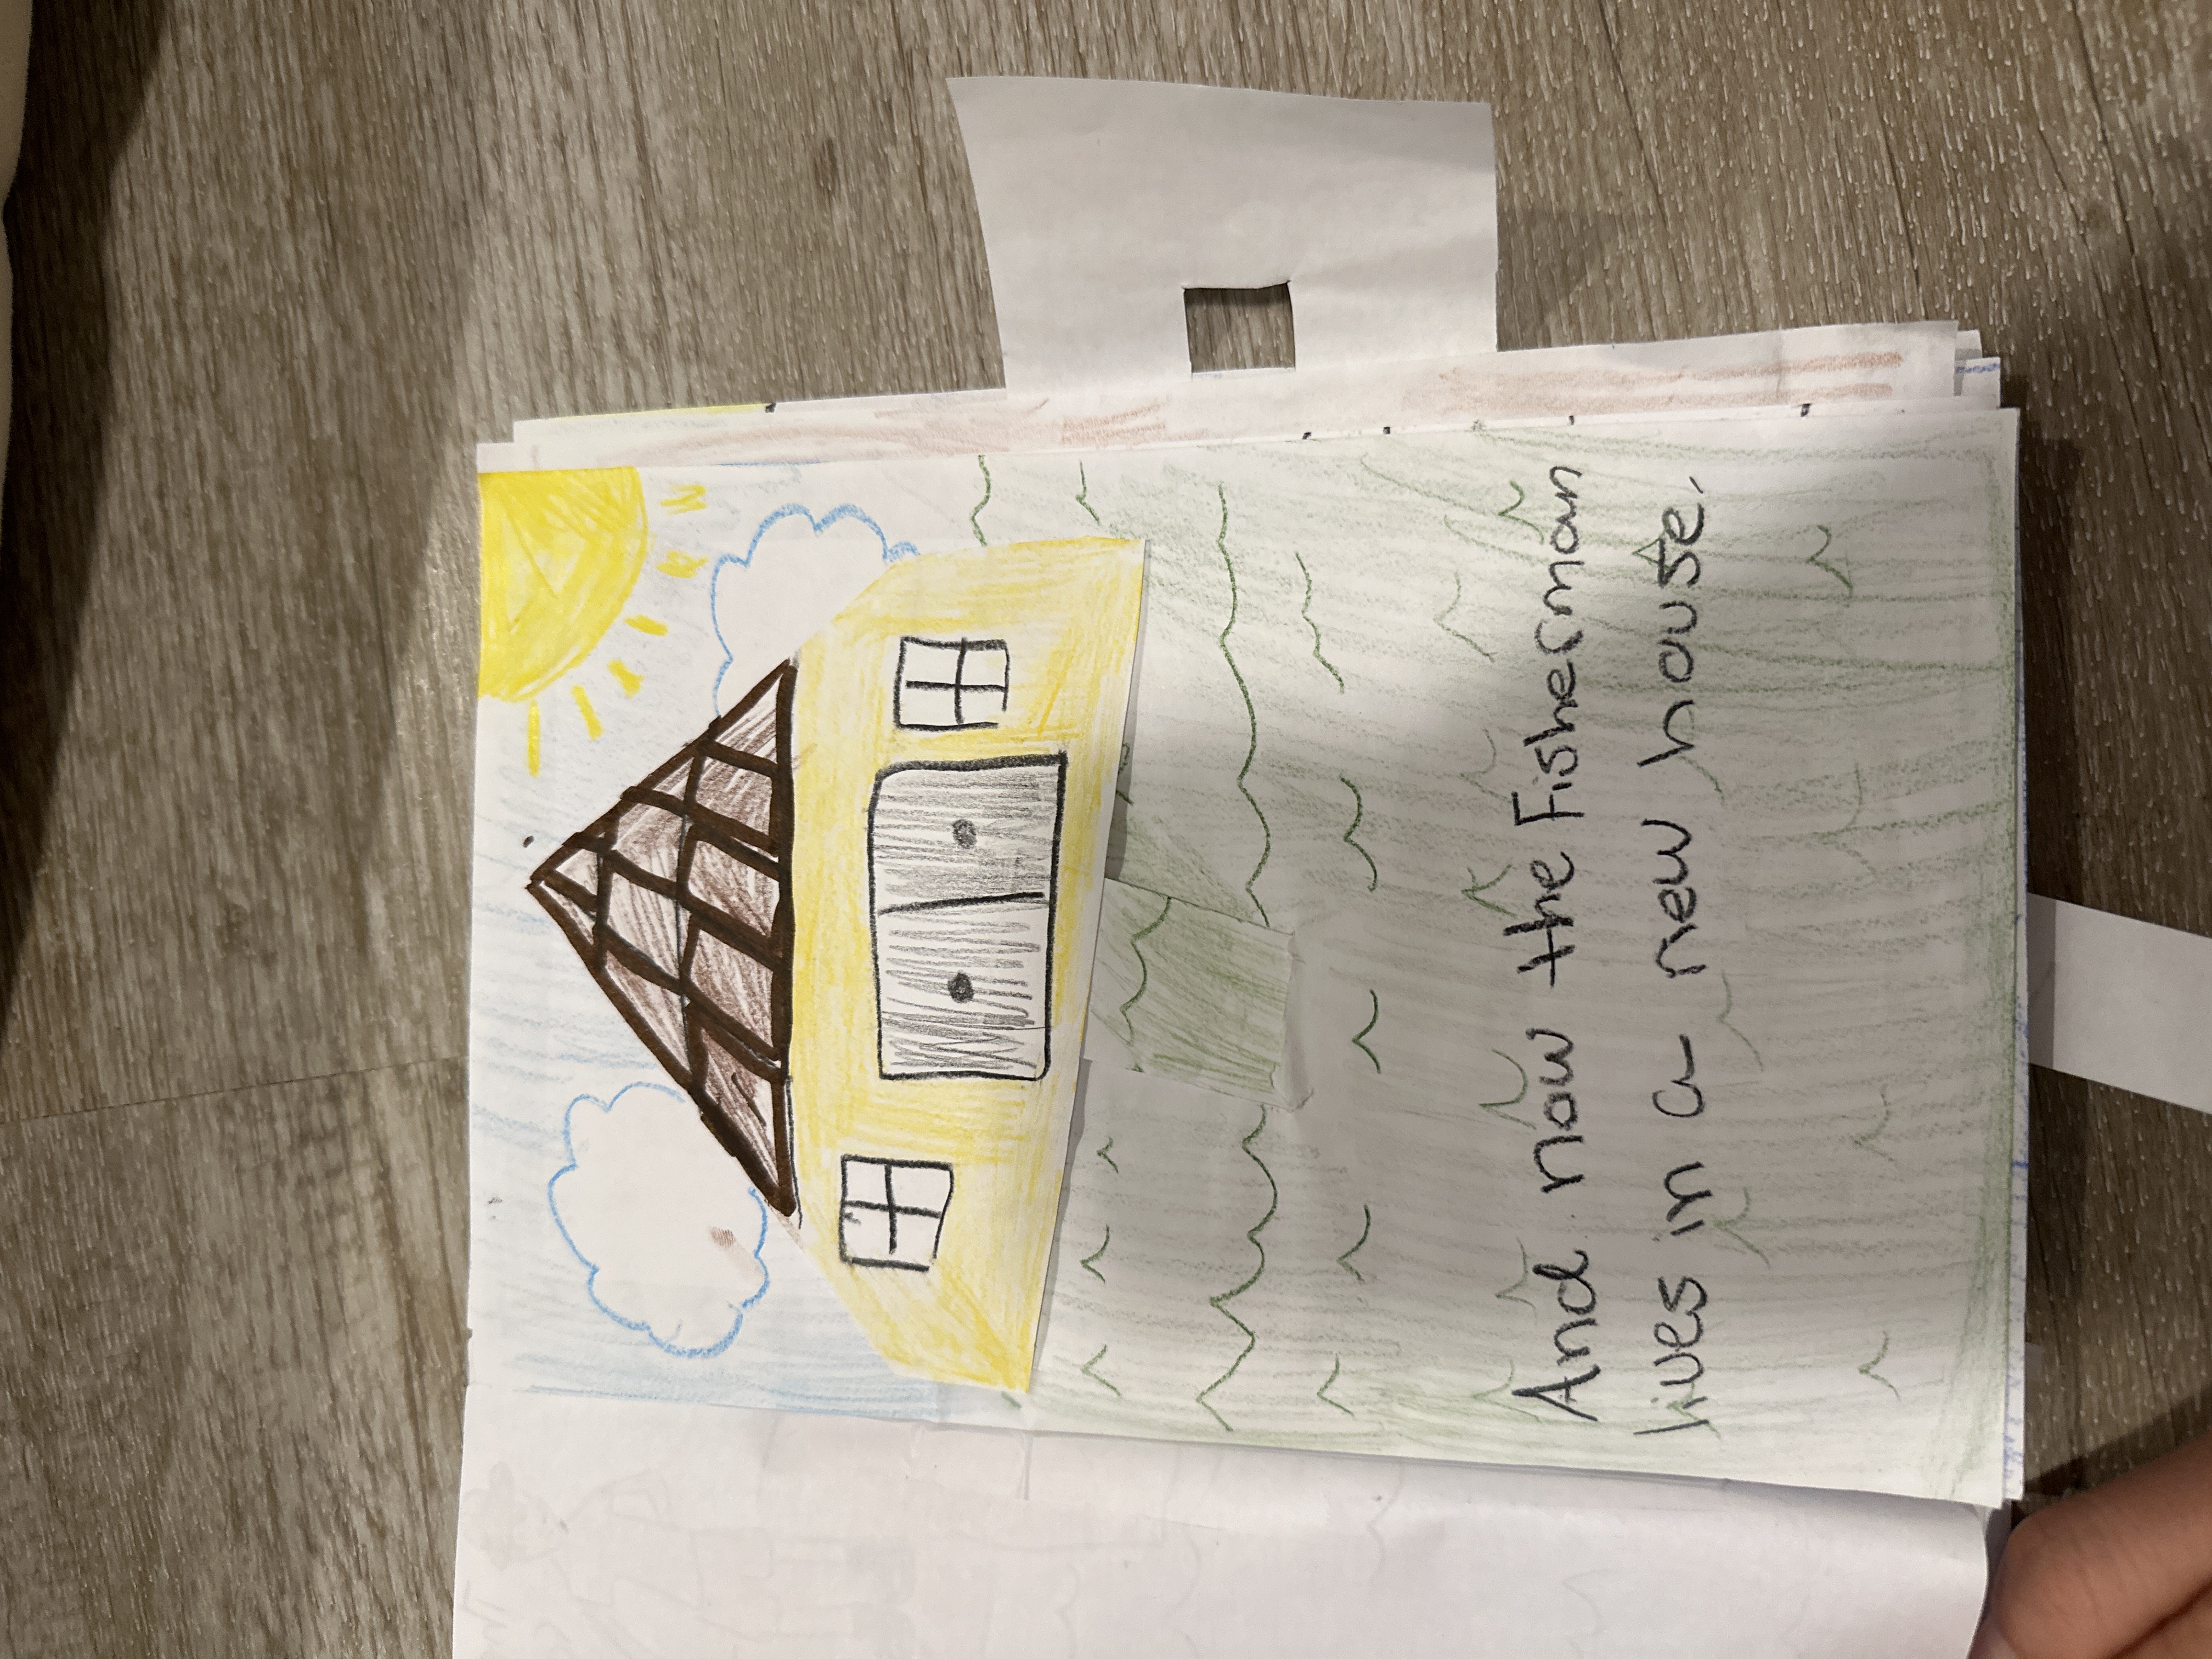 And now the Fisherman
lives in a new house.